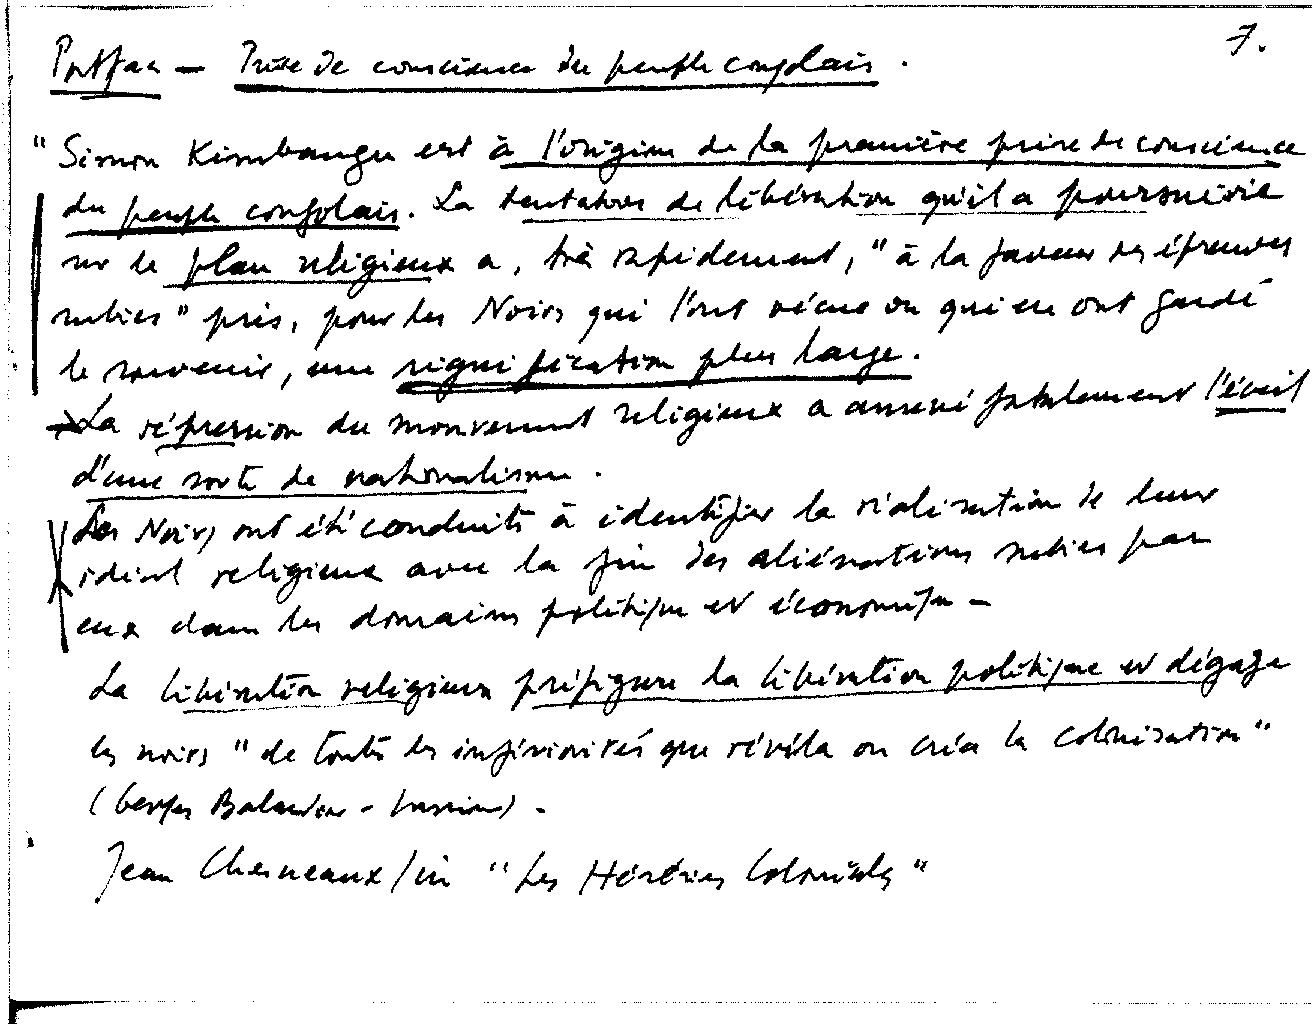 7.
Postface — Prise de conscience du peuple congolais.
"Simon Kimbangu est à l'origine de la première prise de conscience
du peuple congolais. La tentative de libération qu'il a poursuivie
sur le plan religieux a, très rapidement, "à la faveur des épreuves
subies" pris, pour les Noirs qui l'ont vécue ou qui en ont gardé
le souvenir, une signification plus large.
→ La répression du mouvement religieux a amené fatalement l'éveil
d'une sorte de nationalisme.
Les Noirs ont été conduits à identifier la réalisation de leur
idéal religieux avec la fin des aliénations subies par
eux dans les domaines politique et économique —
La libération religieuse préfigure la libération politique et dégage
les noirs "de toutes les infériorités que révéla ou créa la colonisation"
(Georges Balandier - ) -
Jean Chesneaux / in "Les Hérésies Coloniales"